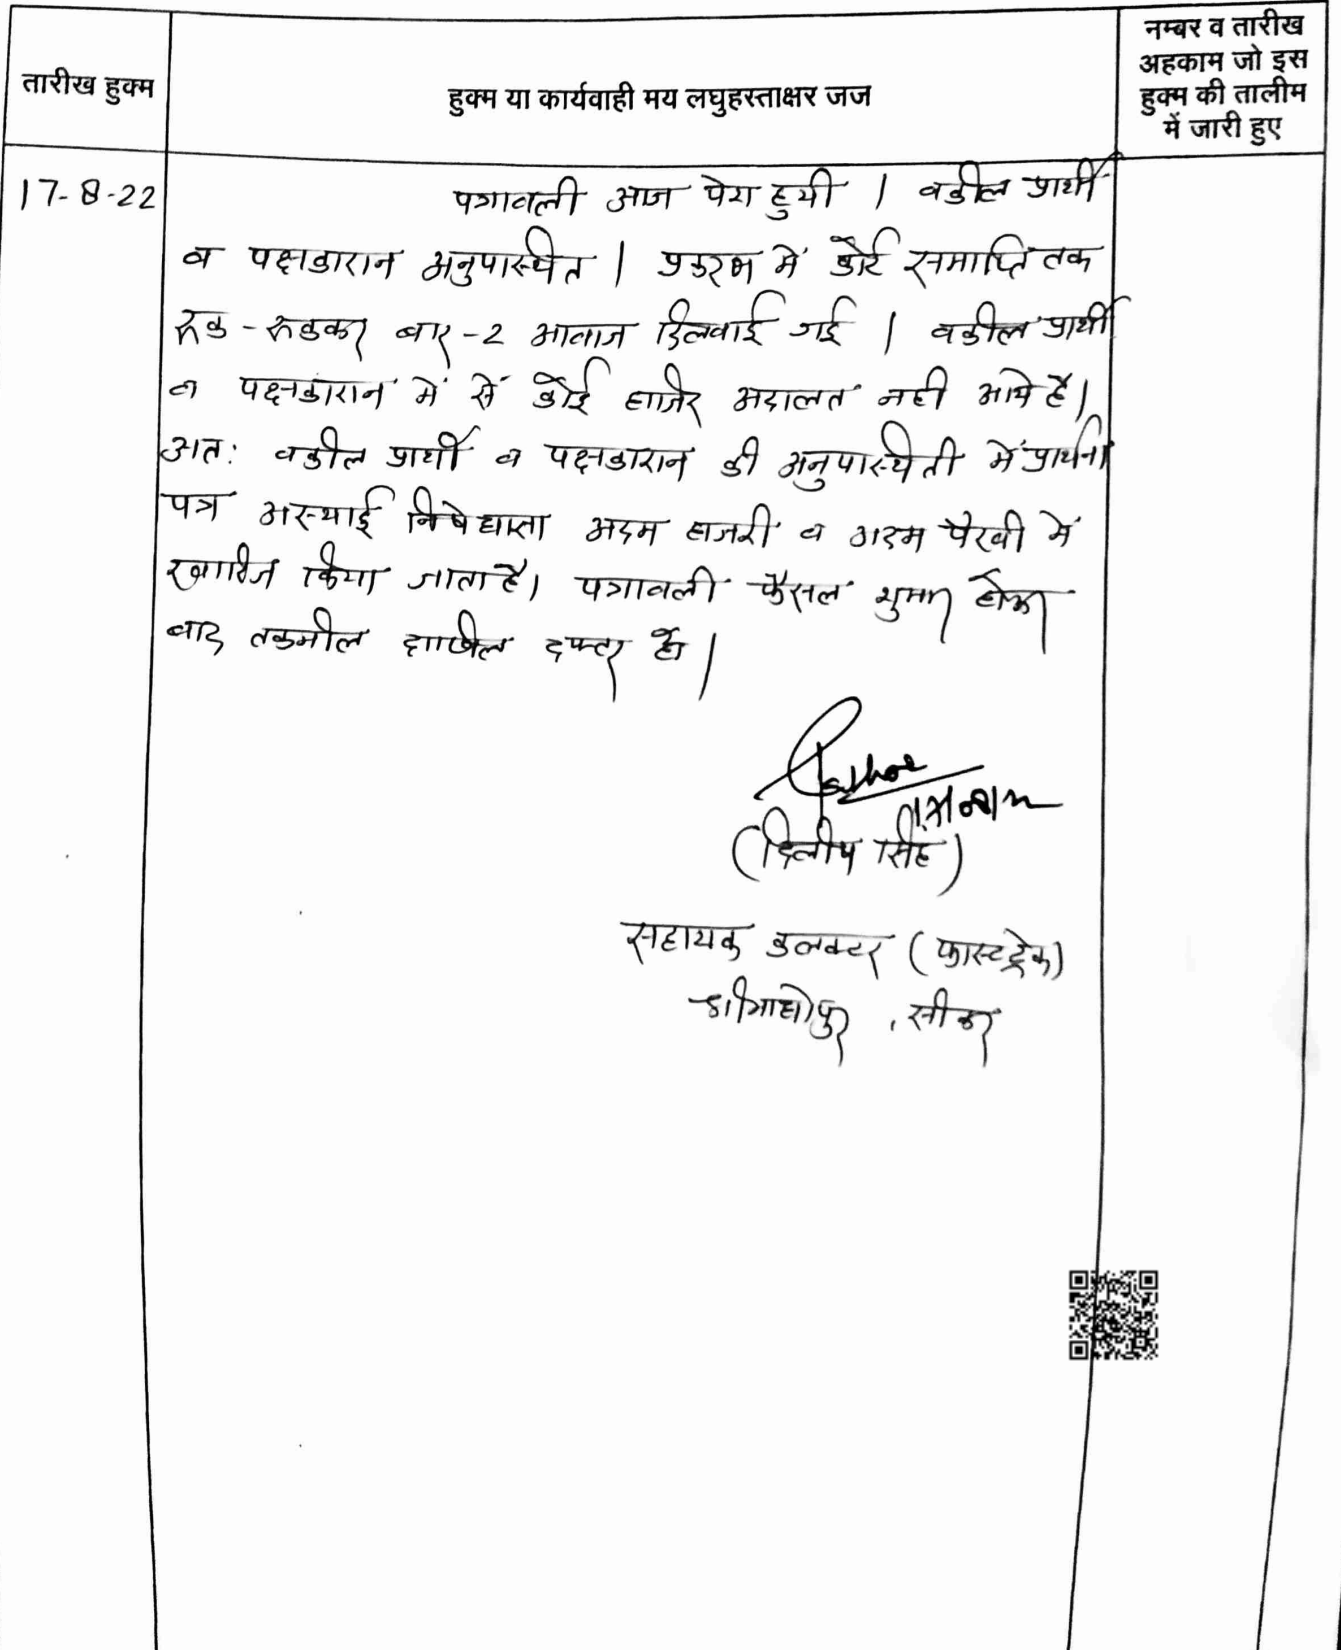 तारीख हुक्म
हुक्म या कार्यवाही मय लघुहस्ताक्षर जज
नम्बर व तारीख
अहकाम जो इस
हुक्म की तालीम
में जारी हुए
17-8-22
पत्रावली आज पेश हुयी । वकील प्रार्थी
व पक्षकारान अनुपस्थित । प्रकरण में कोर्ट समाप्ति तक
रूक - रूककर बार-2 आवाज दिलवाई गई । वकील प्रार्थी
व पक्षकारान में से कोई हाजिर अदालत नही आये है।
अतः वकील प्रार्थी व पक्षकारान की अनुपस्थिती में प्रार्थना
पत्र अस्थाई निषेधाज्ञा अदम हाजरी व अदम पैरवी में
खारिज किया जाता है। पत्रावली फैसल शुमार होकर
बाद तकमील दाखिल दफ्तर हो ।
(दिलीप सिंह)
सहायक कलक्टर (फास्टट्रेक)
श्रीमाधोपुर , सीकर